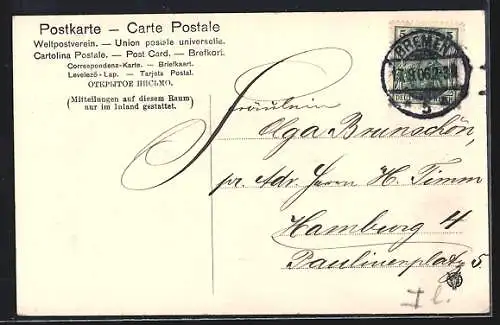 Postkarte – Carte Postale
Weltpostverein. — Union postale universelle.
Cartolina Postale. — Post Card. — Brefkort.
Correspondenz-Karte. — Briefkaart.
Levelező-Lap. — Tarjeta Postal.
ОТКРЫТОЕ ПИСЬМО.
(Mitteilungen auf diesem Raum
nur im Inland gestattet.)
BREMEN
5
Fräulein
Olga Brunschön,
pr. Adr. Herrn H. Timm
Hamburg 4
Paulinenplatz 5.